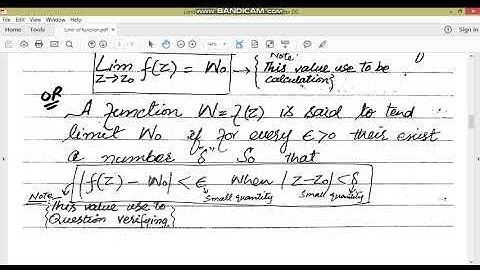 WWW.BANDICAM.COM
Limit of function.pdf
Note:
Lim f(z) = W₀ → {This value use to be
z→z₀ calculation}
OR
A function W=f(z) is said to tend
limit W₀ if for every ϵ>0 their exist
a number "δ" so that
|f(z) - W₀| < ϵ when |z-z₀| < δ
small quantity small quantity
Note
{This value use to
Question verifying}